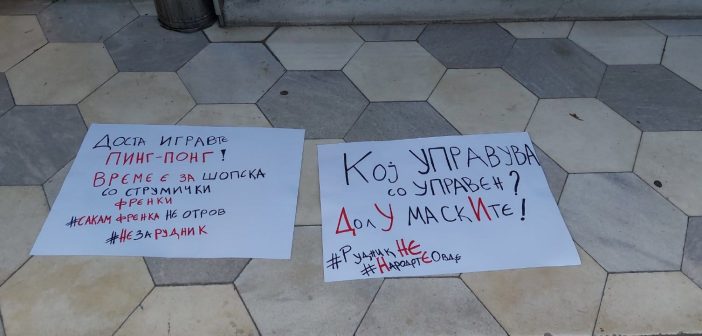 ДОСТА ИГРАВТЕ
ПИНГ-ПОНГ!
ВРЕМЕ Е ЗА ШОПСКА
СО СТРУМИЧКИ
ФРЕНКИ
#САКАМ ФРЕНКА НЕ ОТРОВ
#НЕЗАРУДНИК
КОЈ УПРАВУВА
СО УПРАВЕН?
ДОЛУ МАСКИТЕ!
#РУДНИКНЕ
#НАРОДОТЕОВДЕ